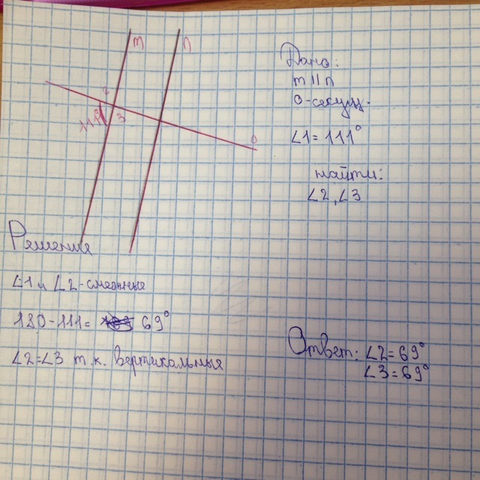 m n
Дано:
m || n
0-секущ.
∠1 = 111°
3
0
найти:
∠2, ∠3
Решение
∠1 и ∠2 - смежные
180-111= 69°
∠2=∠3 т.к. вертикальные
Ответ: ∠2=69°
∠3=69°